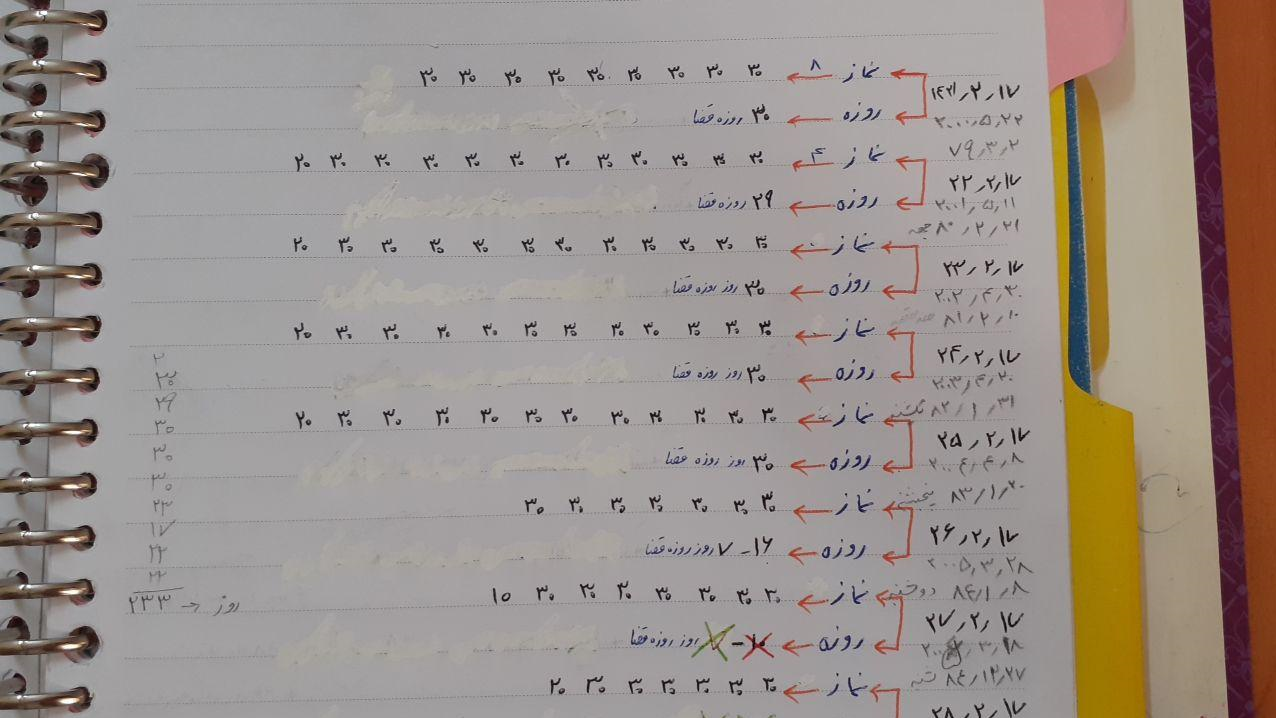 نماز ۸ ← ۳۰ ۳۰ ۳۰ ۳۰ ۳۰ ۳۰ ۳۰ ۳۰ ۳۰
۱۴۲۱٫۲٫۱۷
روزه ← ۳۰ روزه قضا
۲۰۰۰٫۵٫۲۲
۷۹٫۳٫۲
نماز ۴ ← ۳۰ ۳۰ ۳۰ ۳۰ ۳۰ ۳۰ ۳۰ ۳۰ ۳۰ ۳۰ ۳۰ ۲۰
۲۲٫۲٫۱۷
روزه ← ۲۹ روزه قضا
۲۰۰۱٫۵٫۱۱
۸۰٫۲٫۲۱ جمعه
نماز ← ۳۰ ۳۰ ۳۰ ۳۰ ۳۰ ۳۰ ۳۰ ۳۰ ۳۰ ۳۰ ۳۰ ۲۰
۲۳٫۲٫۱۷
روزه ← ۳۰ روز روزه قضا
۲۰۰۲٫۴٫۳۰
۸۱٫۲٫۱۰
نماز ← ۳۰ ۳۰ ۳۰ ۳۰ ۳۰ ۳۰ ۳۰ ۳۰ ۳۰ ۳۰ ۳۰ ۲۰
۲۴٫۲٫۱۷
روزه ← ۳۰ روز روزه قضا
۲۰۰۳٫۴٫۲۰
۸۲٫۱٫۳۱ یکشنبه
نماز ← ۳۰ ۳۰ ۳۰ ۳۰ ۳۰ ۳۰ ۳۰ ۳۰ ۳۰ ۳۰ ۳۰ ۲۰
۲۵٫۲٫۱۷
روزه ← ۳۰ روز روزه قضا
۲۰۰۴٫۴٫۸
۸۳٫۱٫۲۰ پنجشنبه
نماز ← ۳۰ ۳۰ ۳۰ ۳۰ ۳۰ ۳۰ ۳۰
۲۶٫۲٫۱۷
روزه ← ۱۶ - ۷ روز روزه قضا
۲۰۰۵٫۳٫۲۸
۸۴٫۱٫۸ دوشنبه
نماز ← ۳۰ ۳۰ ۳۰ ۳۰ ۳۰ ۳۰ ۳۰ ۱۵
۲۷٫۲٫۱۷
روزه ← ۱۰ - ۷ روز روزه قضا
۸۴٫۱۲٫۲۷ شنبه
نماز ← ۳۰ ۳۰ ۳۰ ۳۰ ۳۰ ۲۰
۲۸٫۲٫۱۷
۳۰
۲۹
۳۰
۳۰
۳۰
۲۳
۱۷
۲۲
۲۲
۲۳۳ ← روز